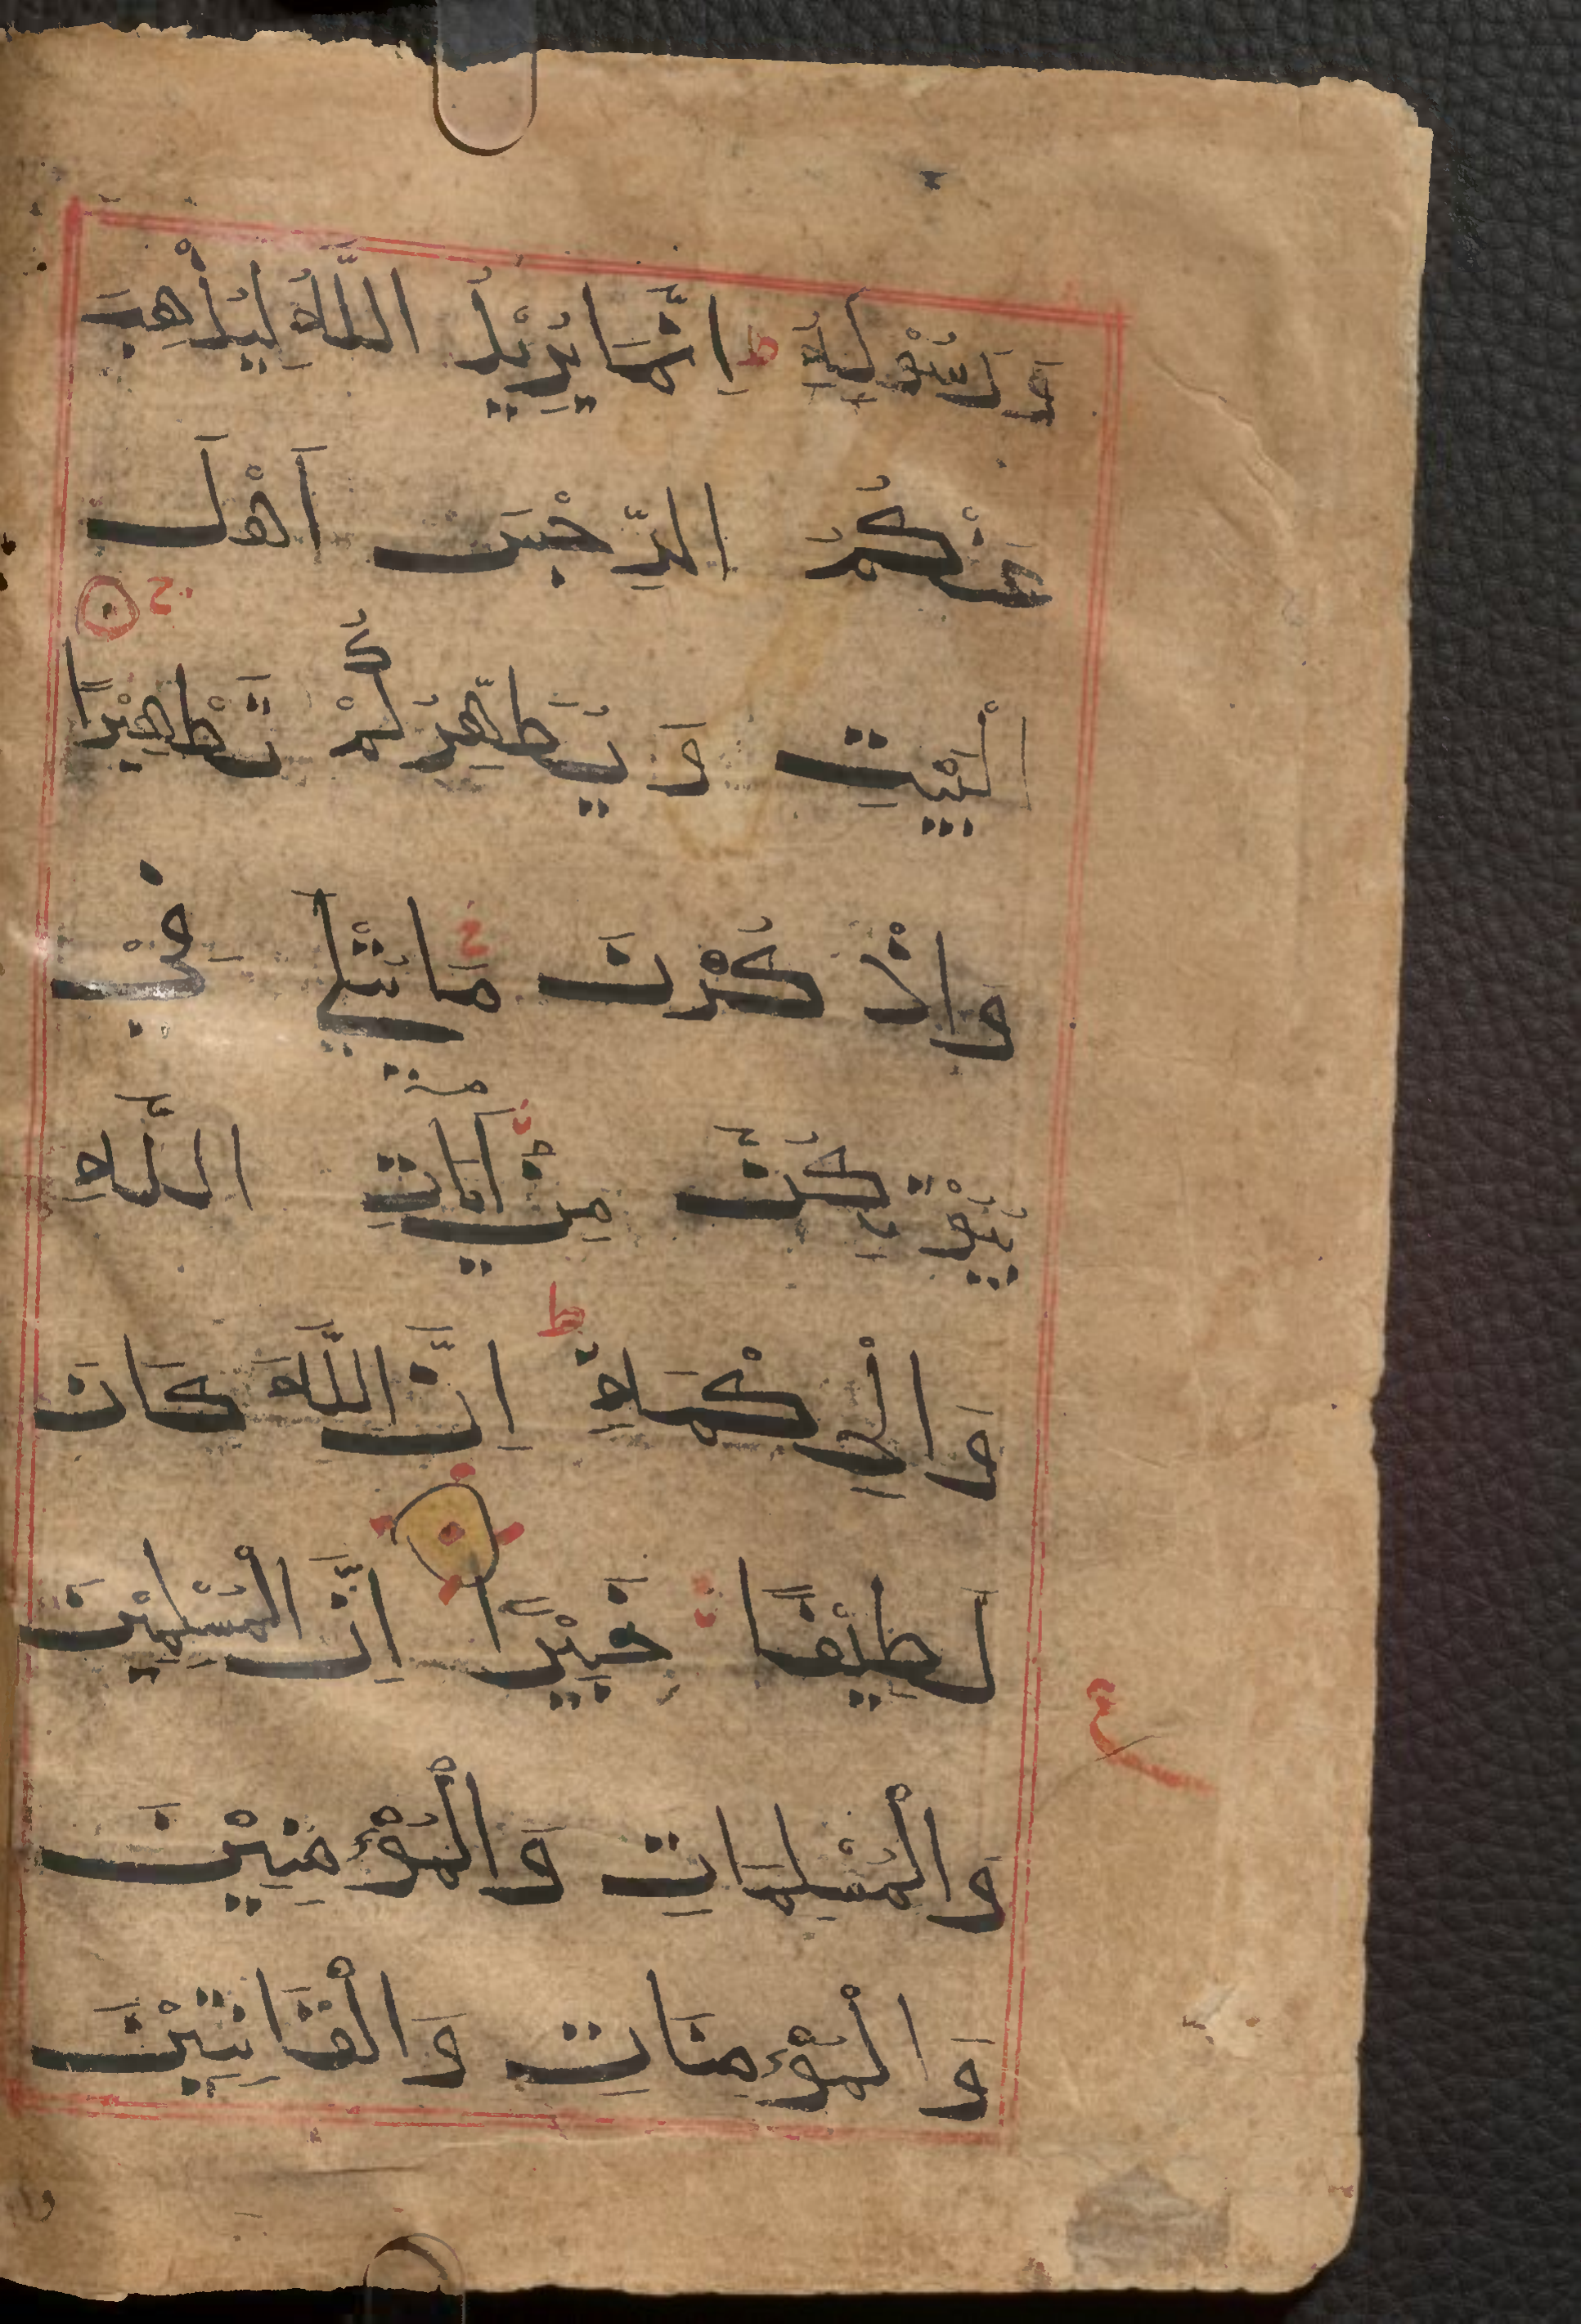 وَ رَسُوْلَهُ ط اِنَّمَا يُرِيْدُ اللّٰهُ لِيُذْهِبَ
عَنْكُمُ الرِّجْسَ اَهْلَ
الْبَيْتِ وَ يُطَهِّرَكُمْ تَطْهِيْرًا ج
وَاذْ كُرْنَ مَا يُتْلٰي فِيْ
بُيُوْ تِكُنَّ مِنْ اٰيَاتِ اللّٰهِ
وَ الْحِكْمَةِ ط اِنَّ اللّٰهَ كَانَ
لَطِيْفًا خَبِيْرًا اِنَّ الْمُسْلِمِيْنَ
وَالْمُسْلِمَاتِ وَالْمُؤْمِنِيْنَ
وَ الْمُؤْمِنَاتِ وَ الْقَانِتِيْنَ